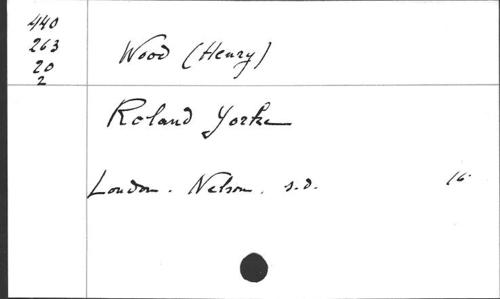 440
263
20
2
Wood (Henry)
Roland Yorke
London. Nelson. s.d. 16